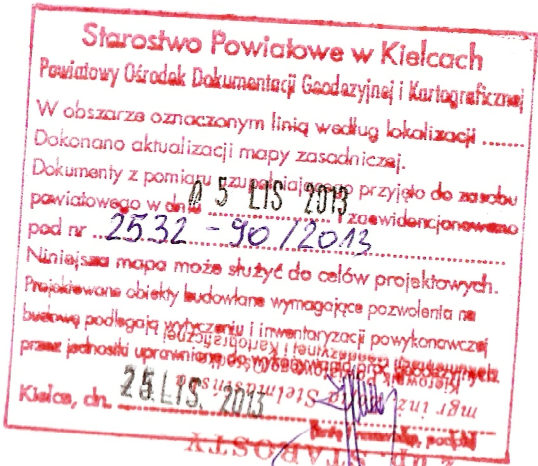 Starostwo Powiatowe w Kielcach
Powiatowy Ośrodek Dokumentacji Geodezyjnej i Kartograficznej
W obszarze oznaczonym linią według lokalizacji ......
Dokonano aktualizacji mapy zasadniczej.
Dokumenty z pomiaru uzupełniającego przyjęto do zasobu
powiatowego w dniu 05 LIS 2013 zaewidencjonowano
pod nr 2532-90/2013
Niniejsza mapa może służyć do celów projektowych.
Projektowane obiekty budowlane wymagające pozwolenia na
budowę podlegają wytyczeniu i inwentaryzacji powykonawczej
przez jednostki uprawnione do wykonywania prac geodezyjnych
mgr inż.
Kielce, dn. 25. LIS. 2013
z up. STAROSTY